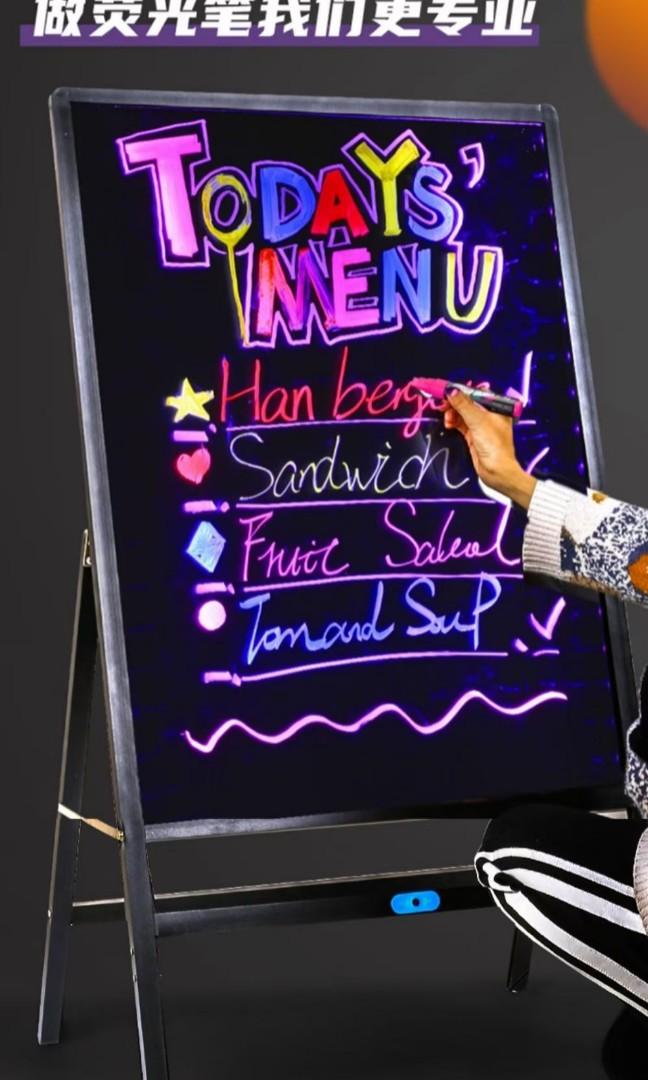 做荧光笔我们更专业
TODAYS'
MENU
Han berg
Sandwich
Fruic Salead
Tomand SouP